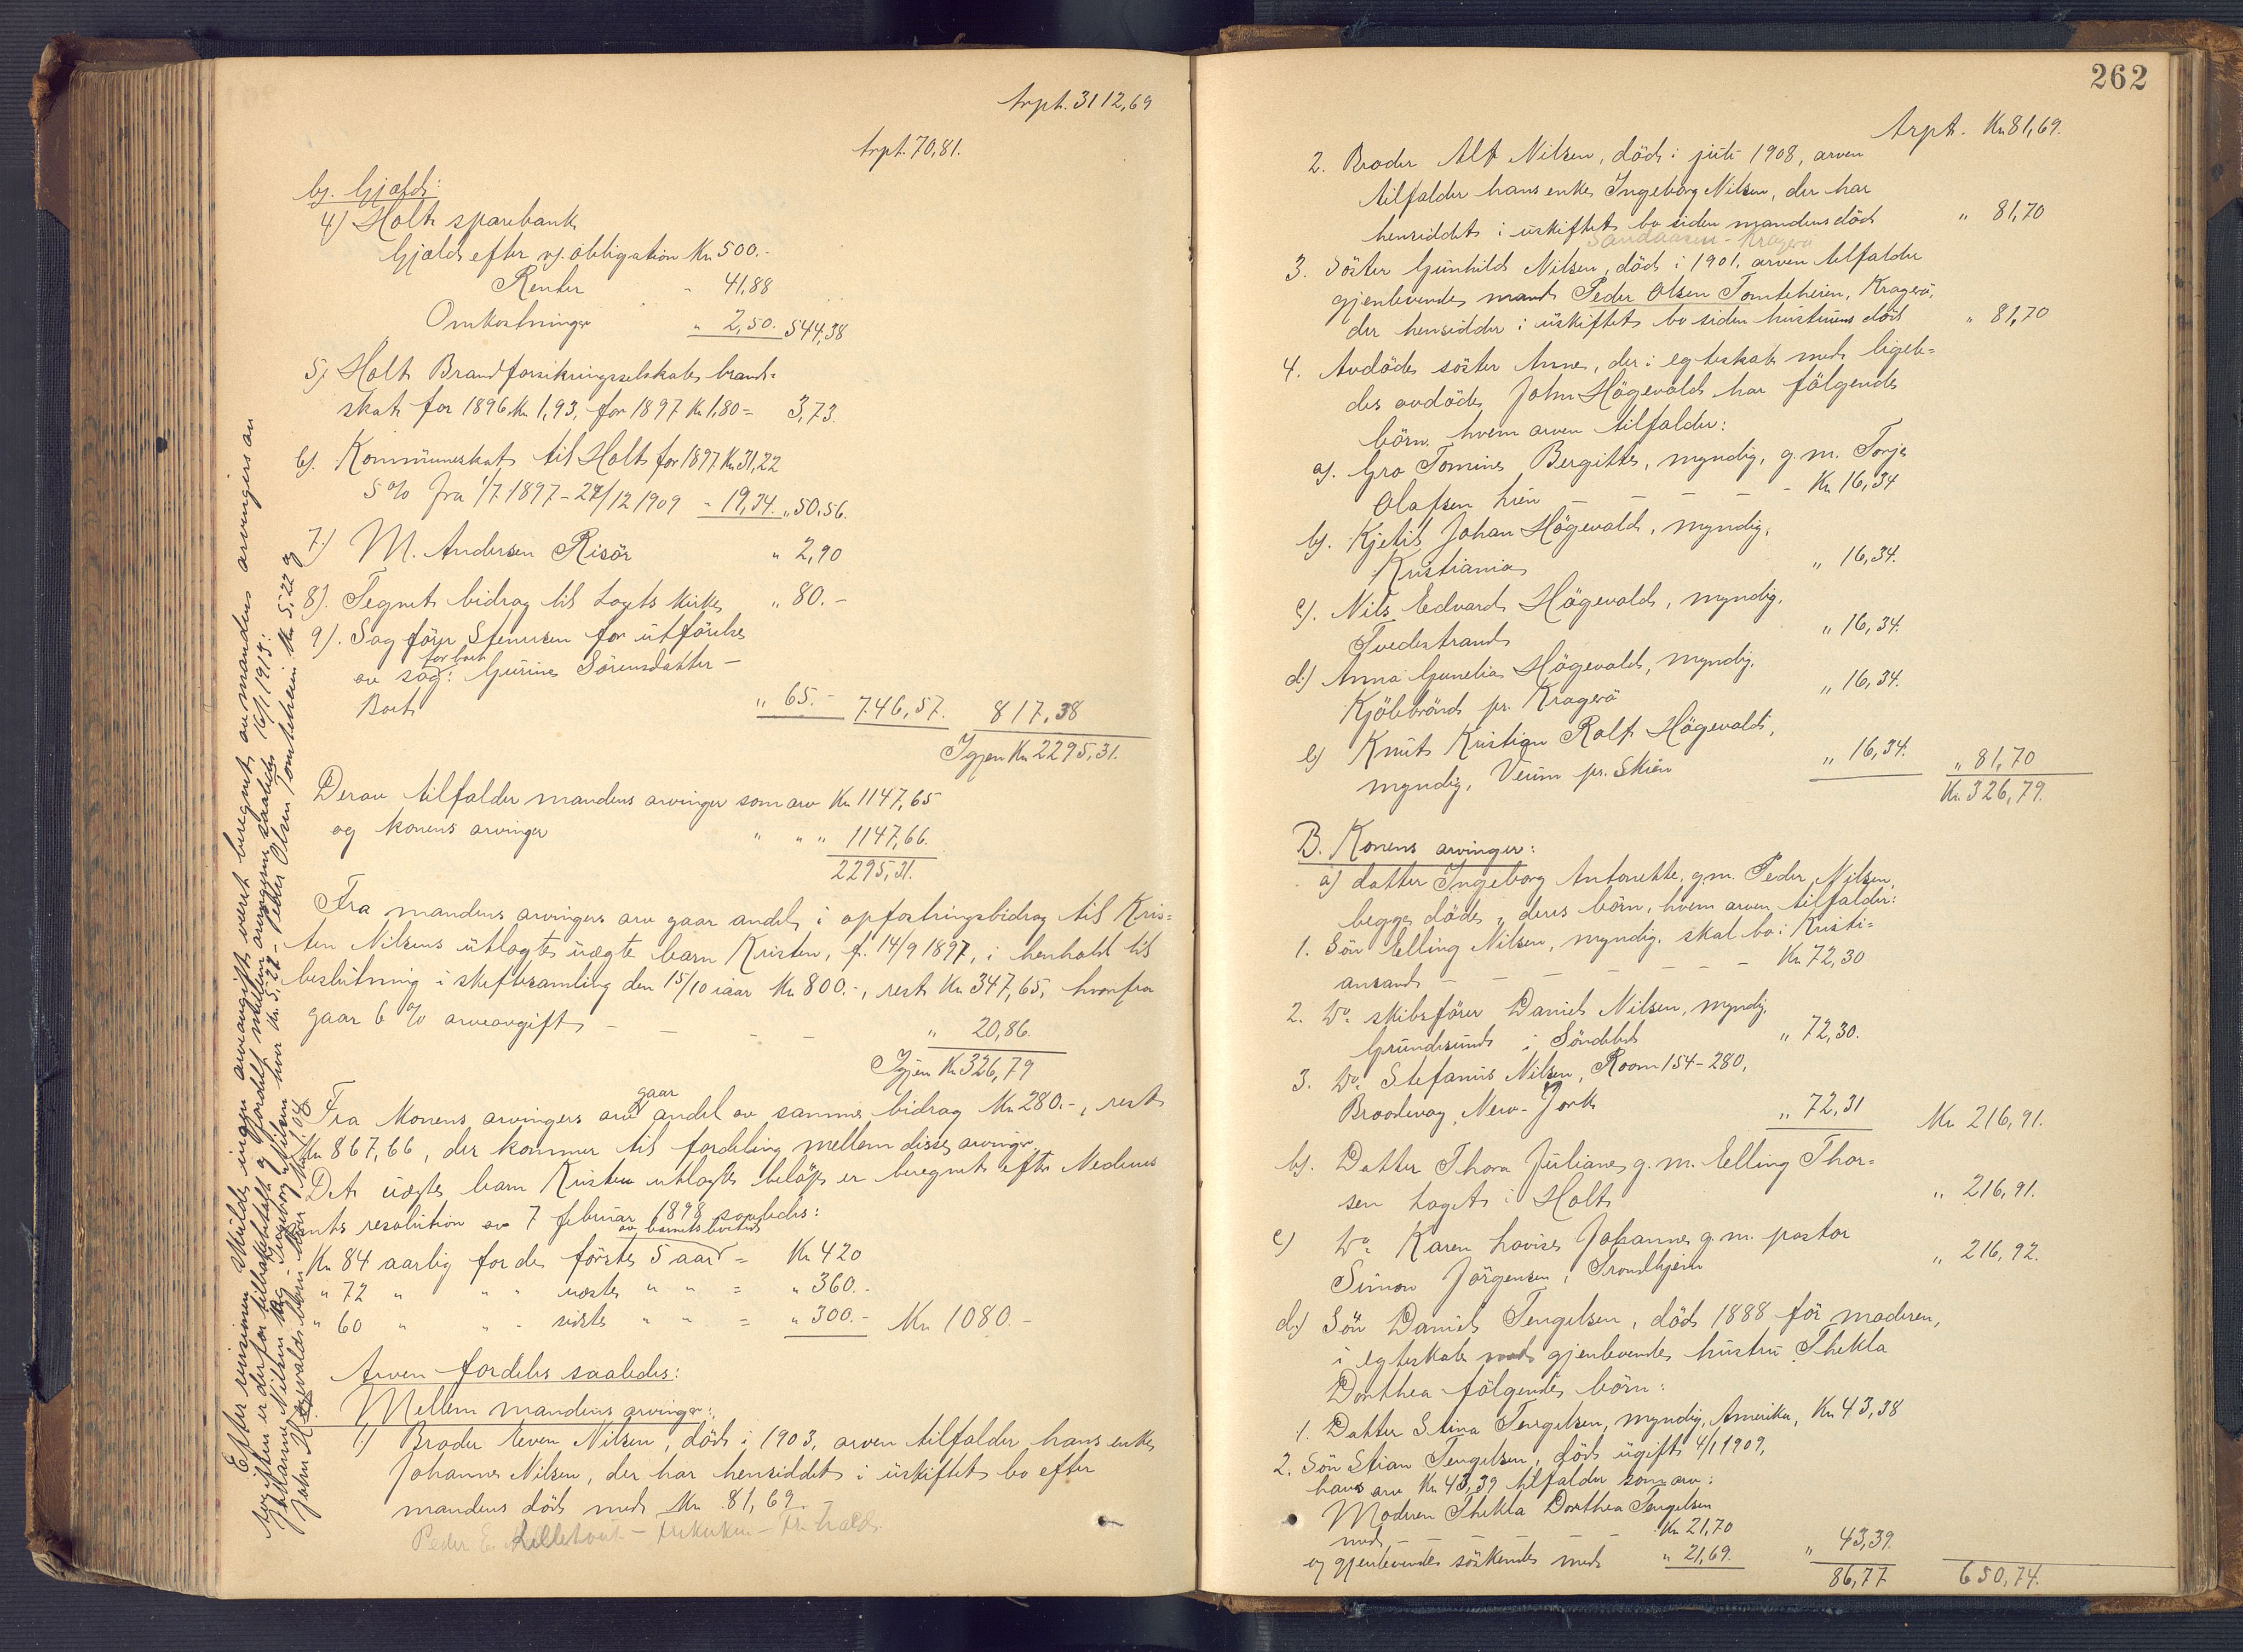 trpt. 3112,69
trpt. 70,81.
b). Gjæld:
4) Holt sparebank
Gjæld efter obligation Kr 500.-
Renter " 41,88
Omkostninger " 2,50. 544,38
5) Holt Brandforsikringsselskab brand-
skat for 1896 Kr 1,93, for 1897 Kr 1,80 = 3,73.
6). Kommuneskat til Holt for 1897 Kr 31,22
5 % fra 1/7 1897 - 27/12 1909 - 19,34. " 50,56.
7.) M. Andersen Risör " 2,90
8). Tegnet bidrag til Laget kirke " 80.-
9). Sagförer Stenersen for utförelse
av sag: for boet Gurine Sörensdatter -
Boet " 65.- 746,57. 817,38
Igjen Kr 2295,31.
Derav tilfalder mandens arvinger som arv Kr 1147,65
og konens arvinger " " " 1147,66.
2295,31.
Fra mandens arvingers arv gaar andel i opfostringsbidrag til Kris-
ten Nilsens utlagte uægte barn Kristen, f. 14/9 1897, i henhold til
beslutning i skiftesamling den 15/10 iaar Kr 800.-, rest Kr 347,65, hvorfra
gaar 6 % arveavgift - - - - " 20,86.
Igjen Kr 326,79
Fra konens arvingers arv gaar andel av samme bidrag Kr 280.-, rest
Kr 867,66, der kommer til fordeling mellem disse arvinger.
Det uægte barn Kristen utlagte beløp er beregnet efter Nedenes
amts resolution av 7 februar 1898 saaledes:
Kr 84 aarlig for de förste 5 aar av barnets levetid = Kr 420
" 72 " " " næste " " = " 360.-
" 60 " " " sidste " " = " 300.- Kr 1080.-
Arven fordeles saaledes:
Mellem mandens arvinger:
1.) Broder Even Nilsen, död i 1903, arven tilfalder hans enke
Johanne Nilsen, der har hensiddet i uskiftet bo efter
mandens död med Kr 81,69.
Peder E.
Efter revisionen skulde ingen arveavgift været beregnet av mandens arvingers arv
Avgiften er derfor tilbakebetalt og fordelt mellem arvingerne saaledes 16/1 1913:
Johanne Nilsen og Ingeborg Nilsen hver Kr 5,22 - Peder Olsen Tomteheien Kr 5,22 og
John Högevolds børn hver Kr 1,04
262
trpt. Kr 81,69.
2. Broder Alf Nilsen, död i juli 1908, arven
tilfalder hans enke Ingeborg Nilsen, der har
hensiddet i uskiftet bo siden mandens död " 81,70
Sandaasen - Kragerö
3. Söster Gunhild Nilsen, död i 1901, arven tilfalder
gjenlevende mand Peder Olsen Tomteheien, Kragerö,
der hensidder i uskiftet bo siden hustruens död " 81,70
4. Avdöde söster Anne, der i egteskab med ligele-
des avdöde John Högevold har fölgende
börn hvem arven tilfalder:
a). Gro Tomine Bergitte, myndig, g. m. Torje
Olafsen Lien - - - - - Kr 16,34
b). Kjetil Johan Högevold, myndig,
Kristiania " 16,34.
c). Nils Edvard Högevold, myndig,
Tvedestrand " 16,34.
d.) Anna Gunelia Högevold, myndig,
Kjölebrönd pr. Kragerö " 16,34.
e) Knut Kristian Rolf Högevold,
myndig, Veum pr. Skien " 16,34. " 81,70
Kr. 326,79.
B. Konens arvinger:
a) datter Ingeborg Antonette, g.m. Peder Nilsen,
begge döde, deres börn, hvem arven tilfalder:
1. Sön Elling Nilsen, myndig, skal bo i Kristi-
ansand - - - - - - Kr 72,30
2. Do. skibsförer Daniel Nilsen, myndig,
Grundesund i Söndeled " 72,30.
3. Do. Stefanus Nilsen, Room 154-280,
Broodway, New-York " 72,31 Kr 216,91.
b). Datter Thora Juliane g. m. Elling Thor-
sen Laget i Holt " 216,91.
c) Do. Karen Lovise Johanne g. m. pastor
Simon Jörgensen i Trondhjem " 216,92.
d.) Sön Daniel Tengelsen, död 1888 för moderen,
i egteskab med gjenlevende hustru Thekla
Dorthea fölgende börn:
1. Datter Stina Tengelsen, myndig, Amerika, Kr 43,38
2. Sön Stian Tengelsen, död ugift 4/1 1909,
hans arv Kr 43,39 tilfalder som arv:
Moderen Thekla Dorthea Tengelsen
med - - - - Kr 21,70
og gjenlevende söskende med " 21,69. " 43,39.
86,77 650,74.